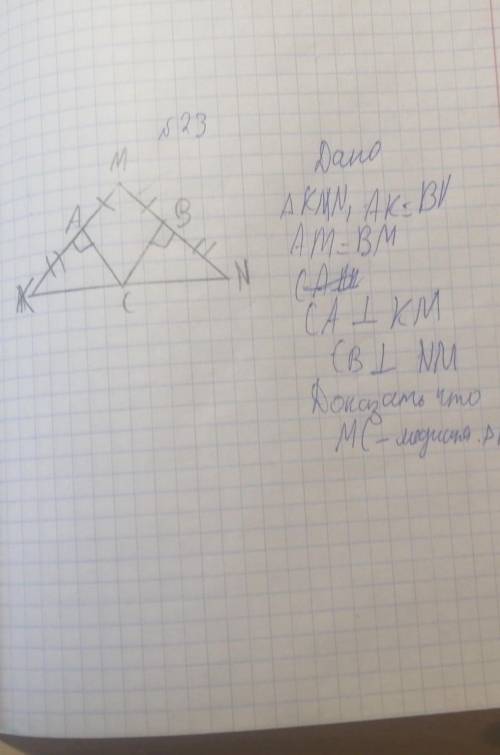 №23
M
A
B
K
C
N
Дано
Δ KMN, AK = BN
AM = BM
CA ⊥ KM
CB ⊥ NM
Доказать что
MC - медиана